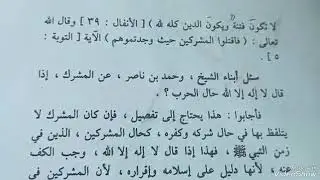 لا تكونَ فتنةٌ ويكونَ الدين كله لله ) [ الأنفال : ٣٩ ] وقال الله
تعالى : ( فاقتلوا المشركين حيث وجدتموهم ) الآية [ التوبة :
٥ ] .
سئل أبناء الشيخ ، وحمد بن ناصر ، عن المشرك ، إذا
قال لا إله إلا الله حال الحرب ؟
فأجابوا : هذا يحتاج إلى تفصيل ، فإن كان المشرك لا
يتلفظ بها في حال شركه وكفره ، كحال المشركين ، الذين في
زمن النبي ﷺ ، فهذا إذا قال لا إله إلا الله ، وجب الكف
عنه ، لأنها دليل على إسلامه وإقراره ، لأن المشركين في
VideoShow